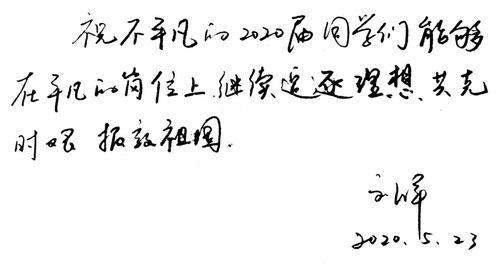 祝不平凡的2020届同学们能够
在平凡的岗位上,继续追逐理想,共克
时艰,报效祖国.
2020.5.23